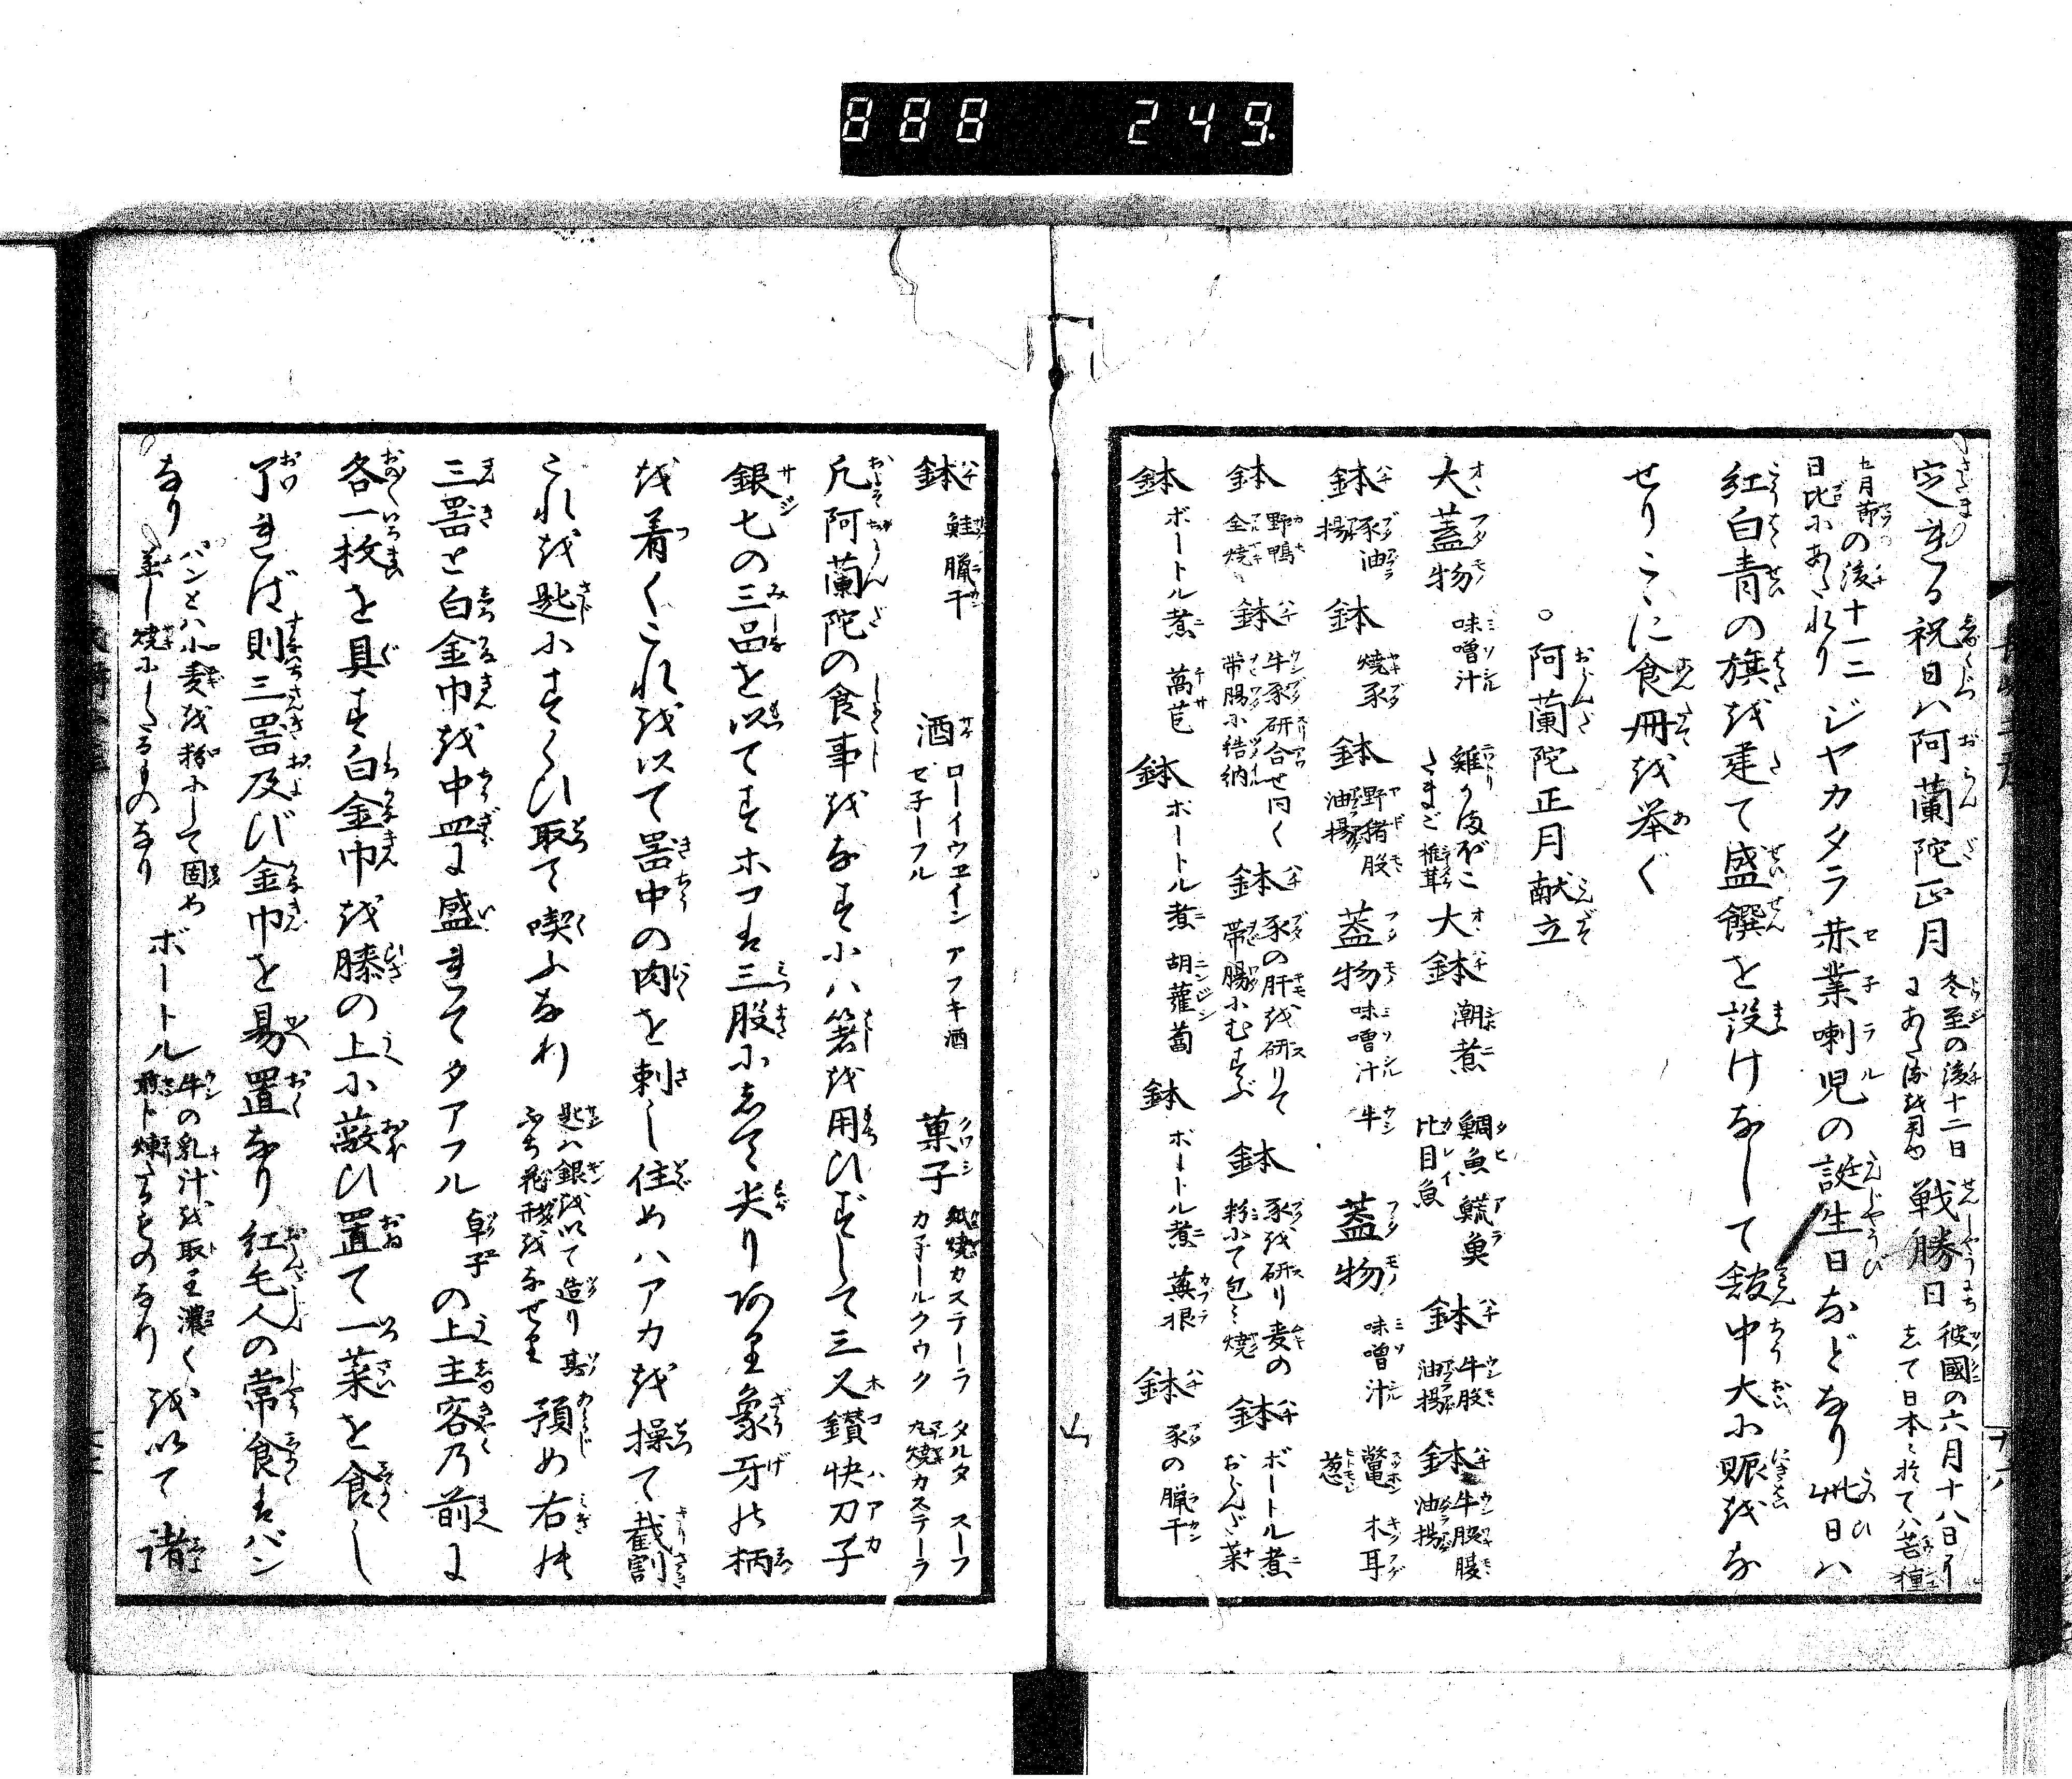 888 249.
定まる祝日ハ阿蘭陀正月 冬至の後十二日 にあたる 戦勝日 彼國の六月十八日 して日本に於てハ芒種
七月節の後十一二 日比にあたれり ジヤカタラ 某業喇児の誕生日などなり 此日ハ
紅白青の旗を建て盛饌を設けなして館中大に賑をな
せりこゝに食冊を挙ぐ
○阿蘭陀正月献立
大蓋物 味噌汁 雞かまぼこ たまご 椎茸 大鉢 潮煮 鯛魚 鱫魚 比目魚 鉢 牛股 油揚 鉢 牛脇腹 油揚
鉢 豕油 揚 鉢 焼豕 鉢 野猪股 油揚 蓋物 味噌汁 牛 蓋物 味噌汁 鼈 木耳 葱
鉢 野鴨 全焼 鉢 牛豕研合せ同く 帯腸に詰納 鉢 豕の肝を研りて 帯腸にむすぶ 鉢 豕を研り麦の 粉にて包ミ焼 鉢 ボートル煮 おらんだ菜
鉢 ボートル煮 萵苣 鉢 ボートル煮 胡蘿蔔 鉢 ボートル煮 蕪根 鉢 豕の臘干
鉢 鮭臘干 酒 ローイウヱイン アフキ酒 ゼ子ーフル 菓子 紙焼カステーラ タルタ スーフ カ子ールクウク 丸焼カステーラ
凡阿蘭陀の食事をなすにハ箸を用ひずして三又鑚快刀子
銀匕の三品を以てすホコは三股にして尖り 象牙の柄
を着くこれを以て器中の肉を刺し住めハアカを操て截割
これを匙にすくひ取て喫ふなり 匙ハ銀を以て造り其 ふち花形をなせり 預め右の
三器と白金巾を中皿に盛きてタアフル 卓子 の上主客乃前に
各一枚を具す白金巾を膝の上に蔽ひ置て一菜を食し
了れば則三器及び金巾を易置なり紅毛人の常食はパン
なり パンとハ小麦を粉にして固め 蒸し焼にしたるものなり ボートル 牛の乳汁を取り濃く 煎ト煉たるものなり を以て 諸